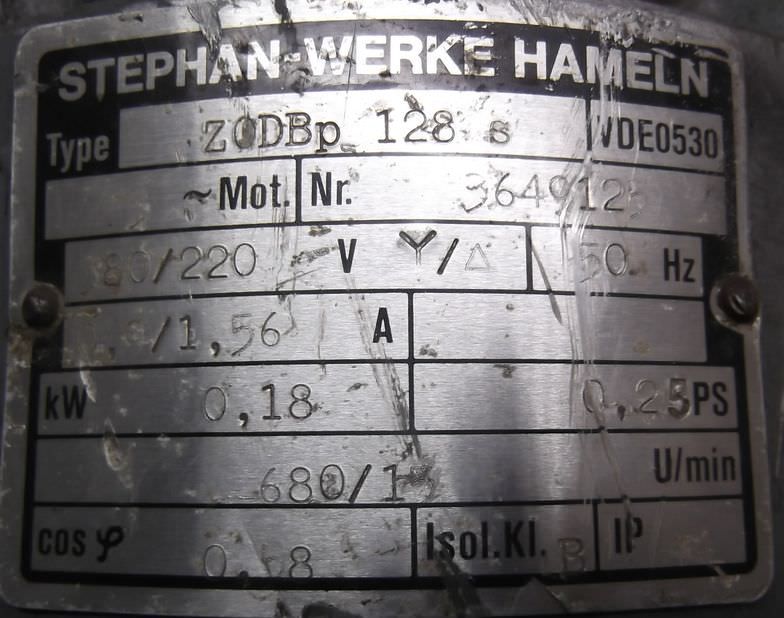 STEPHAN-WERKE HAMELN
Type ZCDBp 128 s VDE0530
~Mot. Nr.
/220 V Y/△ 50 Hz
/1,56 A
kW 0,18 0,25PS
680/ U/min
cos φ Isol.Kl. B IP